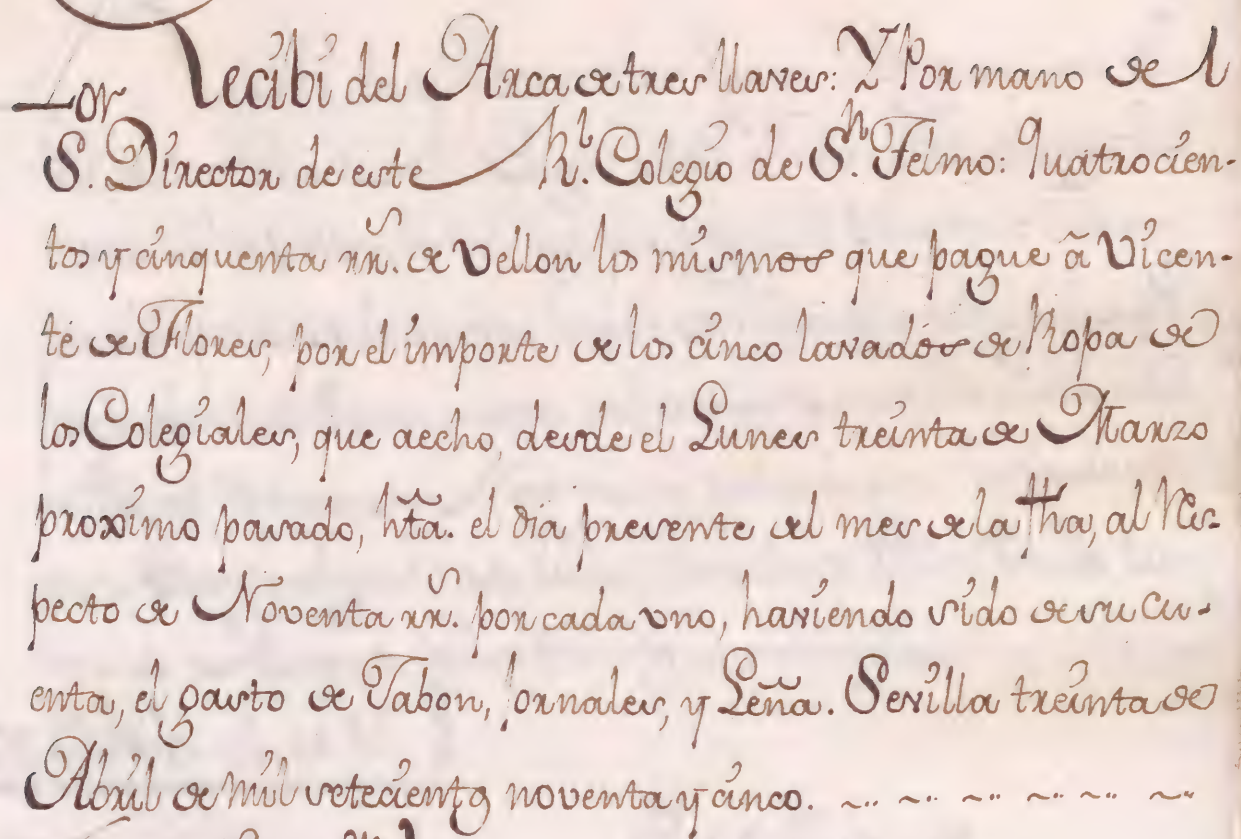 Recibi del Arca de tres llaves: Y Por mano de el
S.or Director de este Rl. Colegio de Sn. Telmo: Quatrocien-
tos y cinquenta rr.s de Vellon los mismos que pague ã Vicen-
te de Flores, por el importe de los cinco lavados de Ropa de
los Colegiales, que aecho, desde el Lunes treinta de Marzo
proximo pasado, hta. el dia presente del mes de la fha, al Res-
pecto de Noventa rr.s por cada vno, haviendo sido de su cu-
enta, el gasto de Jabon, Jornales, y Leña. Sevilla treinta de
Abril de Mil setecientos noventa y cinco.